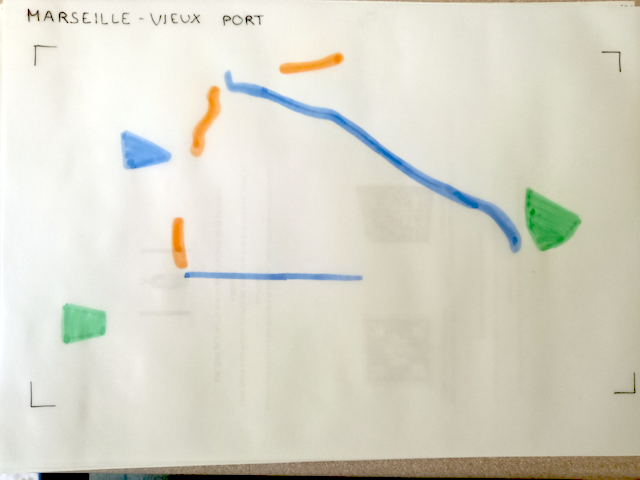 MARSEILLE - VIEUX PORT